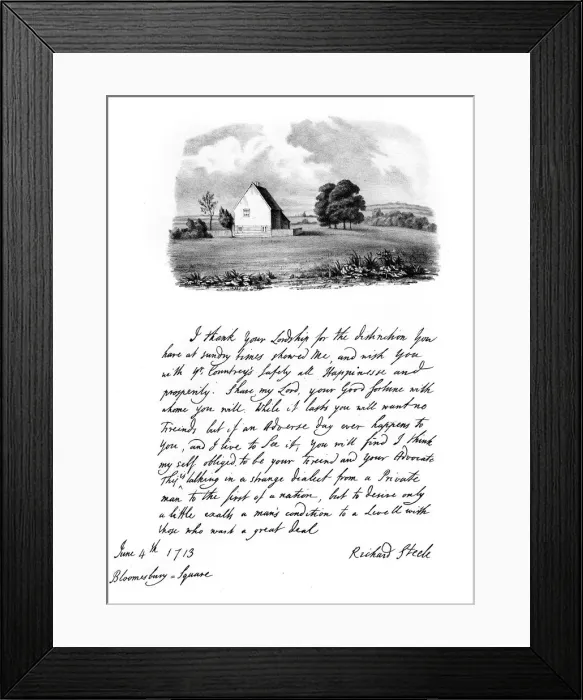 I thank Your Lordship for the distinction You
have at sundry times showed Me, and wish You
with yr. Countrey's safety all Happinesse and
prosperity. Share my Lord, your Good fortune with
whome you will. While it lasts you will want no
freinds, but if an Adverse day ever happens to
You, and I live to See it, You will find I think
my self obliged to be your freind and Your Advocate
This is talking in a strange dialect from a Private
man to the first of a nation, but to desire only
a little exalts a man's condition to a Levell with
those who want a great deal
June 4th 1713 Richard Steele
Bloomesbury-Square